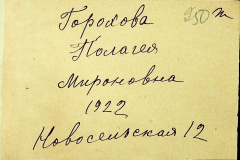 Горохова
Полагея
Мироновна
1922
Новосельская 12